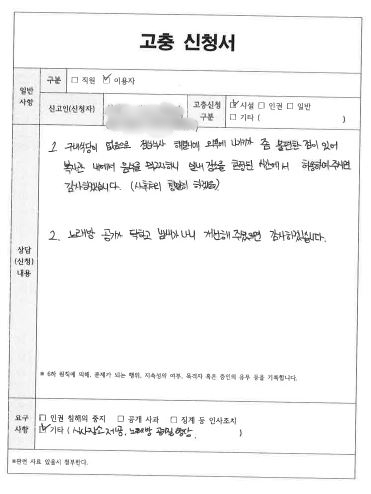 고충 신청서
일반 사항
구분 □ 직원 ☑ 이용자
신고인(신청자)
고충신청 구분 ☑ 시설 □ 인권 □ 일반
□ 기타 ( )
상담 (신청) 내용
1. 구내식당이 없으므로 점심식사 해결이 외부에 나가기가 좀 불편한 점이 있어
복지관 내에서 음식을 먹고자하니 일부 장소를 한정된 시간에서 허용하여주시면
감사하겠습니다. (사후처리 할 것)
2. 노래방 공기가 탁하고 냄새가 나니 개선해 주셨으면 감사하겠습니다.
※ 6하 원칙에 의해, 문제가 되는 행위, 지속성의 여부, 목격자 혹은 증인의 유무 등을 기록합니다.
요구 사항
□ 인권 침해의 중지 □ 공개 사과 □ 징계 등 인사조치
☑ 기타 ( 식사장소 제공, 노래방 공기질 향상, )
※관련 자료 있을시 첨부한다.